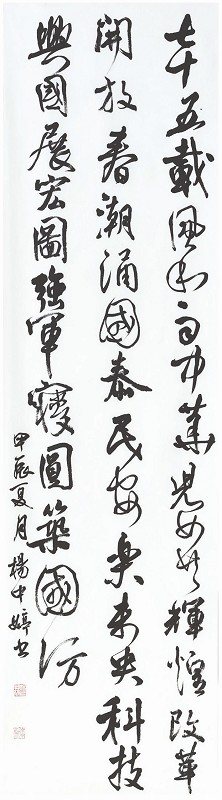 七十五載風和雨中華兒女共輝煌改革
開放春潮涌國泰民安樂未央科技
興國展宏圖強軍夢圓築國防
甲辰夏月楊中婷书